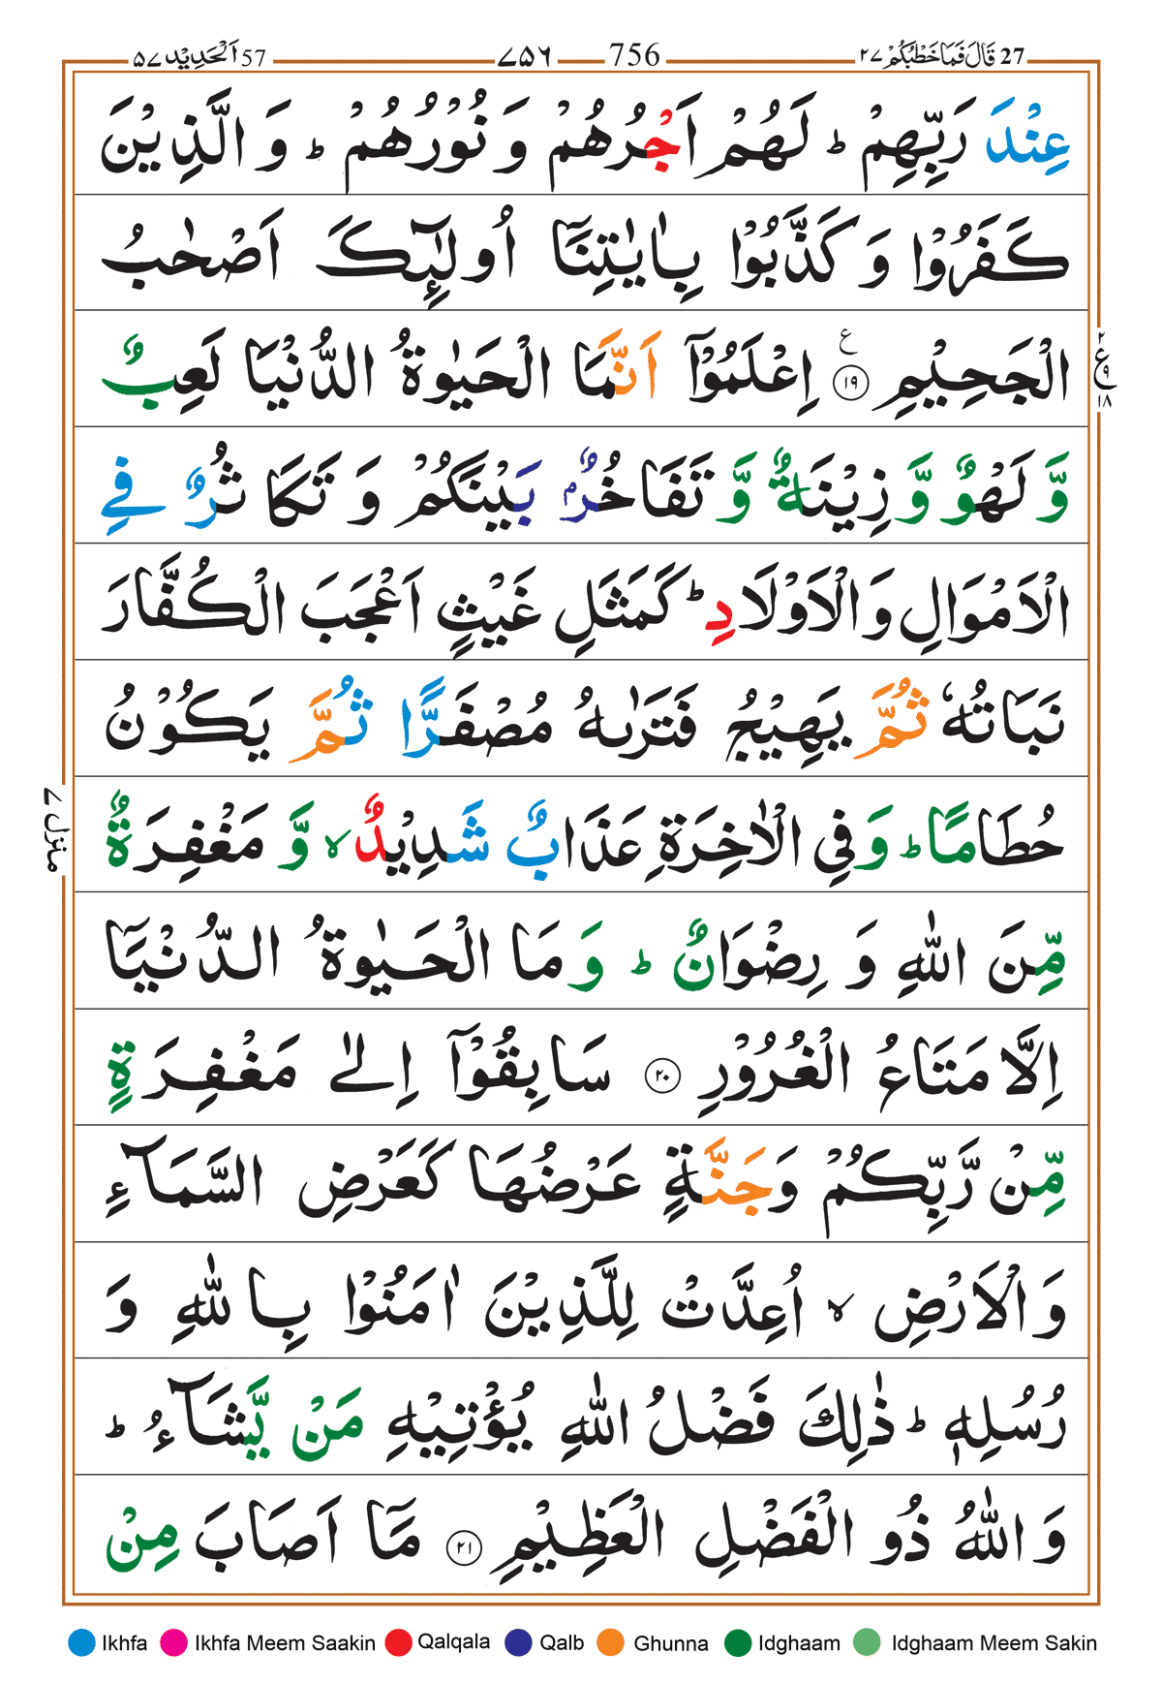 27 قَالَ فَمَا خَطْبُكُمْ ٢٧ 756 ٧٥٦ 57 اَلْحَدِیْد ٥٧
عِنْدَ رَبِّهِمْ ؕ لَهُمْ اَجْرُهُمْ وَ نُوْرُهُمْ ؕ وَ الَّذِیْنَ
كَفَرُوْا وَ كَذَّبُوْا بِاٰیٰتِنَاۤ اُولٰٓىِٕكَ اَصْحٰبُ
الْجَحِیْمِ ۧ ﴿١٩﴾ اِعْلَمُوْۤا اَنَّمَا الْحَیٰوةُ الدُّنْیَا لَعِبٌ
٢ ع ٩ ١٨
وَّ لَهْوٌ وَّ زِیْنَةٌ وَّ تَفَاخُرٌۢ بَیْنَكُمْ وَ تَكَاثُرٌ فِی
الْاَمْوَالِ وَ الْاَوْلَادِ ؕ كَمَثَلِ غَیْثٍ اَعْجَبَ الْكُفَّارَ
نَبَاتُهٗ ثُمَّ یَهِیْجُ فَتَرٰىهُ مُصْفَرًّا ثُمَّ یَكُوْنُ
حُطَامًا ؕ وَ فِی الْاٰخِرَةِ عَذَابٌ شَدِیْدٌ ۙ وَّ مَغْفِرَةٌ
منزل ٧
مِّنَ اللّٰهِ وَ رِضْوَانٌ ؕ وَ مَا الْحَیٰوةُ الدُّنْیَاۤ
اِلَّا مَتَاعُ الْغُرُوْرِ ﴿٢٠﴾ سَابِقُوْۤا اِلٰى مَغْفِرَةٍ
مِّنْ رَّبِّكُمْ وَ جَنَّةٍ عَرْضُهَا كَعَرْضِ السَّمَآءِ
وَ الْاَرْضِ ۙ اُعِدَّتْ لِلَّذِیْنَ اٰمَنُوْا بِاللّٰهِ وَ
رُسُلِهٖ ؕ ذٰلِكَ فَضْلُ اللّٰهِ یُؤْتِیْهِ مَنْ یَّشَآءُ ؕ
وَ اللّٰهُ ذُو الْفَضْلِ الْعَظِیْمِ ﴿٢١﴾ مَاۤ اَصَابَ مِنْ
Ikhfa Ikhfa Meem Saakin Qalqala Qalb Ghunna Idghaam Idghaam Meem Sakin